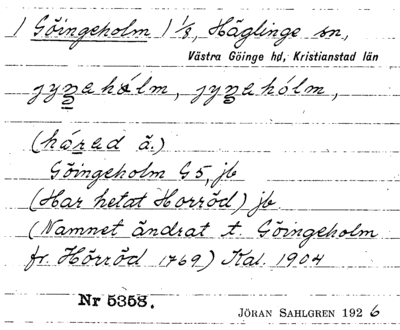 / Göingeholm / 1/8, Häglinge sn,
Västra Göinge hd, Kristianstad län
jyŋehólm, jyŋehólm,
(hárad ä.)
Göingeholm G 5, jb
(Har hetat Horröd) jb
(Namnet ändrat t. Göingeholm
fr. Hörröd 1769) Kal. 1904
Nr 5358.
JÖRAN SAHLGREN 1926